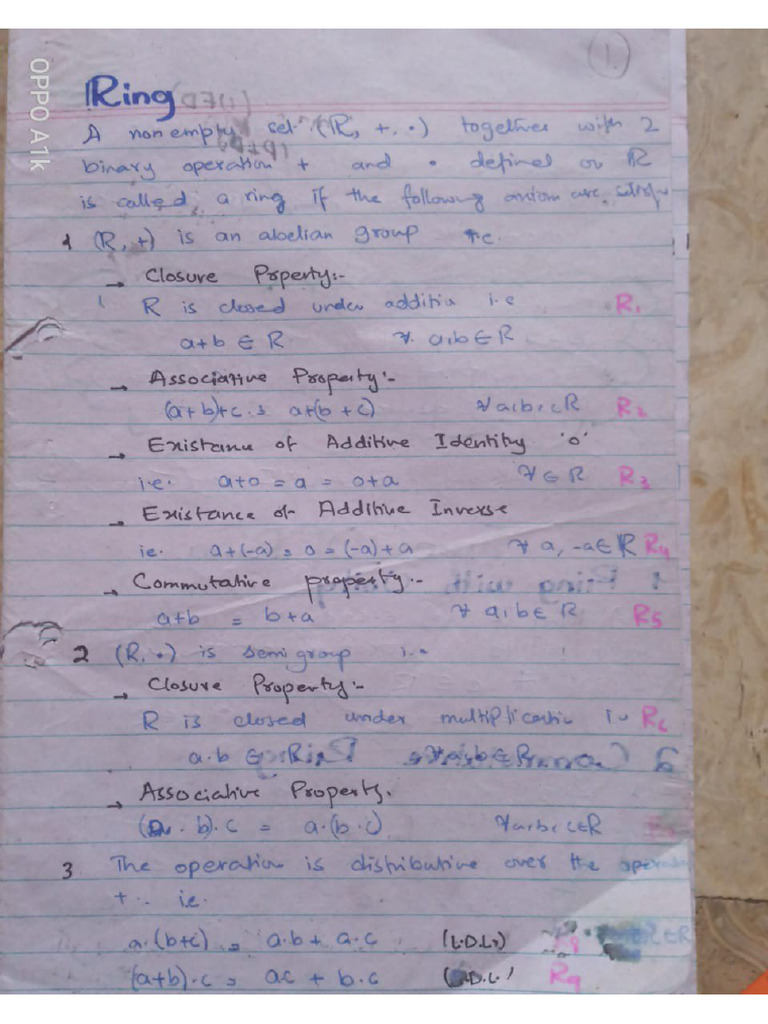 1.
OPPO A1k
Ring
A non empty set (R, +, •) together with 2
binary operation + and • defined on R
is called a ring if the following are
1 (R, +) is an abelian group i.e.
→ Closure Property:-
R is closed under additin i.e R1
a+b ∈ R ∀ a,b ∈ R
→ Associative Property:-
(a+b)+c = a+(b+c) ∀ a,b,c R R2
→ Existanu of Additive Identity 'o'
i.e. a+o = a = o+a ∀ ∈ R R3
→ Existance of Additive Inverse
ie. a+(-a) = o = (-a)+a ∀ a, -a ∈ R R4
→ Commutative property:-
a+b = b+a ∀ a,b ∈ R R5
2 (R, •) is semi group i.e
→ Closure Property:-
R is closed under R6
a.b ∈ R ∀ a,b ∈ R
→ Associative Property.
(a. b). c = a.(b.c) ∀ a,b,c ∈ R
3 The operation is distributive over the
+ . ie.
a.(b+c) = a.b + a.c (L.D.L) R8
(a+b).c = ac + b.c D.L. R9